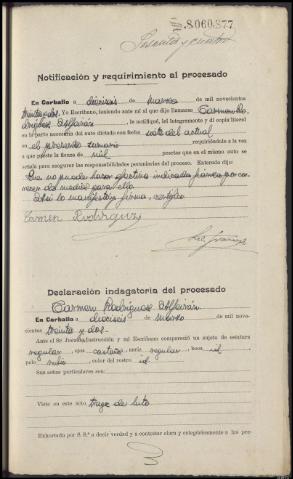 8.060.877
Sesenta y cuatro
Notificación y requirimiento al procesado
En Carballo a dieciseis de marzo de mil novecientos
treinta y dos, Yo Escribano, teniendo ante mí al que dijo llamarse Carmen Ro-
dríguez le notifiqué, leí íntegramente y dí copia literal
en la parte necesaria del auto dictado con fecha siete del actual
en el presente sumario requiriéndole a la vez
a que preste la fianza de mil pesetas que en el mismo auto se
señala para asegurar las responsabilidades pecuniarias del proceso. Enterado dijo:
Que no puede hacer efectiva indicada fianza por ca-
recer de medios para ello
Así lo manifiesta y firma, certifico
Carmen Rodriguez
Declaración indagatoria del procesado
Carmen Rodríguez
En Carballo a dieciseis de marzo de mil nove-
cientos treinta y dos.
Ante el Sr Juez de Instrucción y mí Escribano compareció un sujeto de estatura
regular, ojos castaños, nariz regular, boca id,
pelo rubio, color del rostro id
Sus señas particulares son:
Viste en este acto, traje de luto
Exhortado por S. S.ª a decir verdad y a contestar clara y categóricamente a las pre-